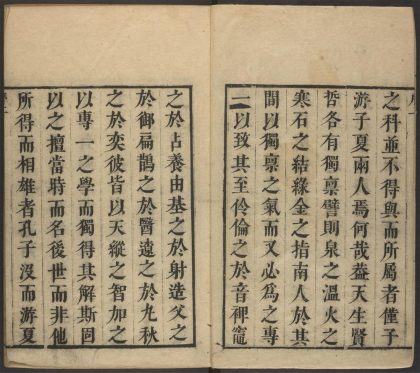 之科並不得與而所屬者僅子
游子夏兩人焉何哉蓋天生賢
哲各有獨稟譬則泉之溫火之
寒石之結綠金之指南人於其
間以獨稟之氣而又必為之專
一以致其至伶倫之於音裨竈
之於占養由基之於射造父之
於御扁鵲之於醫遼之於丸秋
之於奕彼皆以天縱之智加之
以專一之學而獨得其解斯固
以之擅當時而名後世而非他
所得而相雄者孔子沒而游夏